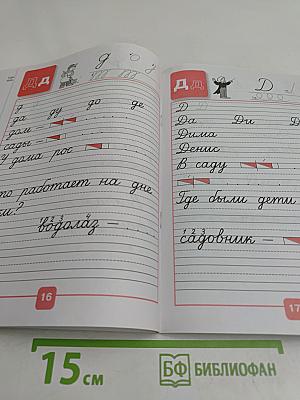 Д д
д
да ду до де
дом
сады
У дома рос
работает на дне
ки?
водолаз
16
Д д
Д
Д
Да Ди Д
Дима
Денис
В саду
Где были дети
садовник
17
15 см
БФ БИБЛИОФАН